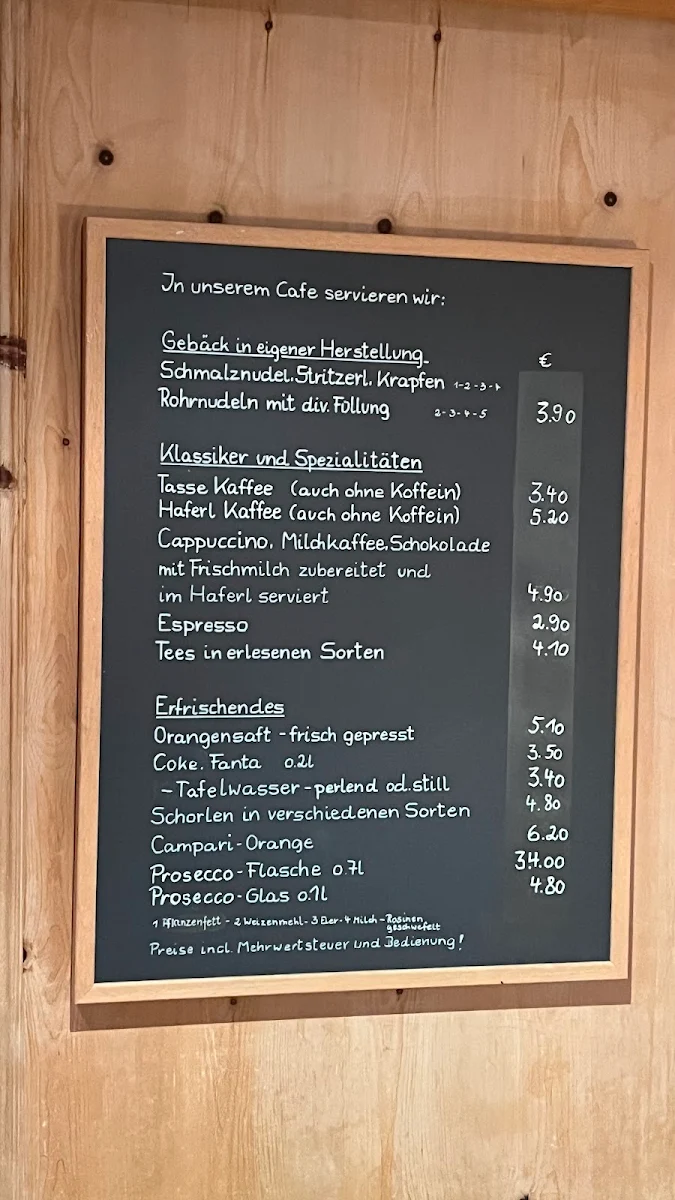 In unserem Cafe servieren wir:
Gebäck in eigener Herstellung €
Schmalznudel. Stritzerl. Krapfen 1-2-3-4
Rohrnudeln mit div. Füllung 2-3-4-5 3.90
Klassiker und Spezialitäten
Tasse Kaffee (auch ohne Koffein) 3.40
Haferl Kaffee (auch ohne Koffein) 5.20
Cappuccino. Milchkaffee. Schokolade
mit Frischmilch zubereitet und
im Haferl serviert 4.90
Espresso 2.90
Tees in erlesenen Sorten 4.10
Erfrischendes
Orangensaft - frisch gepresst 5.10
Coke. Fanta 0.2l 3.50
- Tafelwasser - perlend od. still 3.40
Schorlen in verschiedenen Sorten 4.80
Campari-Orange 6.20
Prosecco-Flasche 0.7l 34.00
Prosecco-Glas 0.1l 4.80
1 Pflanzenfett - 2 Weizenmehl - 3 Eier - 4 Milch - Rosinen
geschwefelt
Preise incl. Mehrwertsteuer und Bedienung!